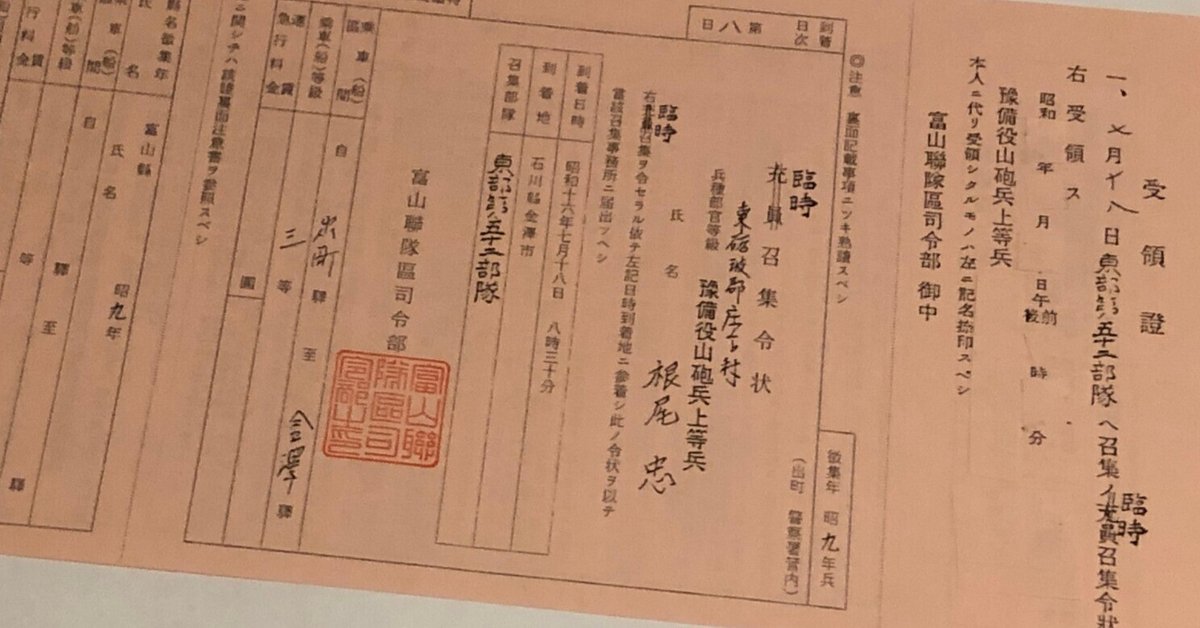 受領證
一、七月十八日東部第五十二部隊ヘ召集ノ臨時充員召集令状
右受領ス
昭和 年 月 日午前後 時 分
豫備役山砲兵上等兵
本人ニ代リ受領シタルモノハ左ニ記名捺印スベシ
富山聯隊區司令部御中
◎注意 裏面記載事項ニツキ熟讀スベシ
到着日次 第八日
徴集年 昭九年兵
臨時
充員召集令状
(出町 警察署管内)
東砺波郡庄下村
兵種部官等級 豫備役山砲兵上等兵
氏名 根尾忠
臨時
右充員召集ヲ令セラル依テ左記日時到着地ニ參着シ此ノ令状ヲ以テ
當該召集事務所ニ届出ツヘシ
到着日時 昭和十六年七月十八日 八時三十分
到着地 石川縣金澤市
召集部隊 東部第五十二部隊
富山聯隊區司令部
富山聯隊區司令部之印
乘車(船)區間 自 出町 驛 至 金澤 驛
乘車(船)等級 三等
急行料金 運賃 圓
ニ關シテハ該證裏面注意書ヲ參照スベシ
縣名徴集年 富山縣 昭九年
氏名 氏名
乘車(船)區間 自 驛 至 驛
乘車(船)等級 等
急行料金 運賃